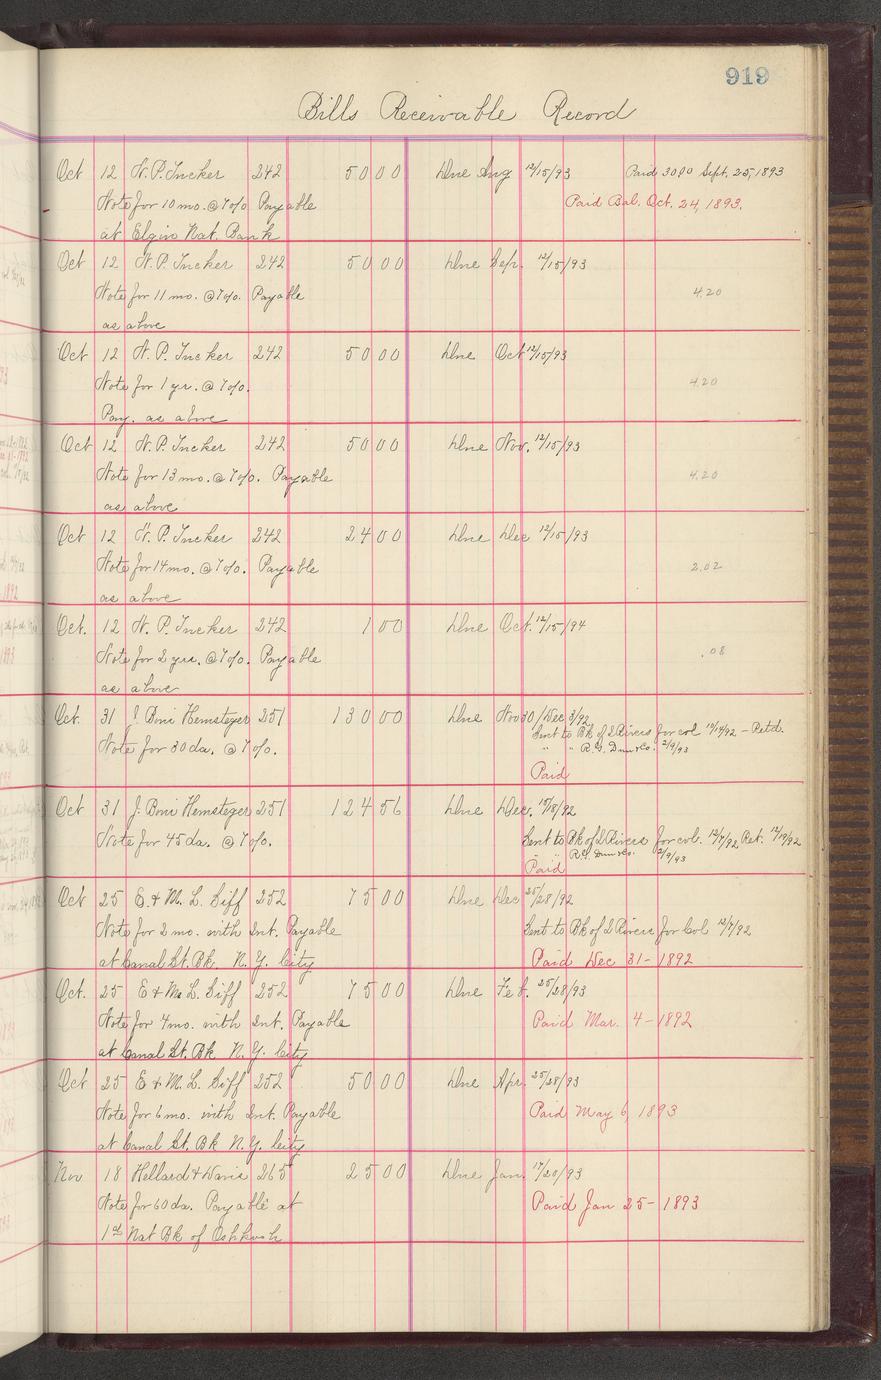 919
Bills Receivable Record
Oct 12 N. P. Tucker 242 50 00 Due Aug 12/15/93 Paid 3000 Sept. 25, 1893
Note for 10 mo. @ 7 %. Payable Paid Bal. Oct. 24, 1893.
at Elgin Nat. Bank
Oct 12 N. P. Tucker 242 50 00 Due Sep. 12/15/93
Note for 11 mo. @ 7 %. Payable 4.20
as above
Oct 12 N. P. Tucker 242 50 00 Due Oct 12/15/93
Note for 1 yr. @ 7 %. 4.20
Pay. as above
Oct 12 N. P. Tucker 242 50 00 Due Nov. 12/15/93
Note for 13 mo. @ 7 %. Payable 4.20
as above
Oct 12 N. P. Tucker 242 24 00 Due Dec 12/15/93
Note for 14 mo. @ 7 %. Payable 2.02
as above
Oct. 12 N. P. Tucker 242 1 00 Due Oct. 12/15/94
Note for 2 yrs. @ 7 %. Payable .08
as above
Oct. 31 J. Boni Hemsteger 251 130 00 Due Nov 30/Dec 3/92
Sent to Bk of 2 Rivers for col 12/14/92 - Retd.
Note for 30 da. @ 7 %. " " R. G. Dun & Co. 2/9/93
Paid
Oct 31 J. Boni Hemsteger 251 124 56 Due Dec. 15/18/92
Note for 45 da. @ 7 %. Sent to Bk of 2 Rivers for col. 12/7/92 Ret. 12/19/92
" " R. G. Dun & Co. 2/9/93
Paid
Oct 25 E. & M. L. Siff 252 75 00 Due Dec 25/28/92
Note for 2 mo. with Int. Payable Sent to Bk of 2 Rivers for Col 12/7/92
at Canal St. Bk. N. Y. City Paid Dec 31 - 1892
Oct. 25 E & M. L. Siff 252 75 00 Due Feb. 25/28/93
Note for 4 mo. with Int. Payable Paid Mar. 4 - 1892
at Canal St. Bk N. Y. City
Oct 25 E & M. L. Siff 252 50 00 Due Apr. 25/28/93
Note for 6 mo. with Int. Payable Paid May 6, 1893
at Canal St. Bk N. Y. City
Nov 18 Hellard & Davis 265 25 00 Due Jan. 17/20/93
Note for 60 da. Payable at Paid Jan 25 - 1893
1st Nat Bk of Oshkosh